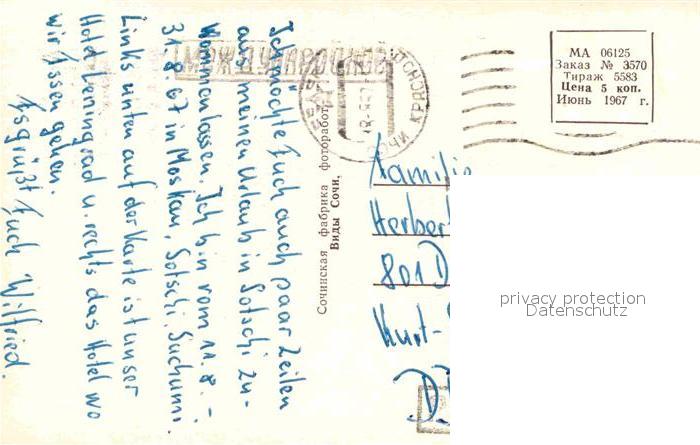 Ich möchte Euch auch paar Zeilen
aus meinen Urlaub in Sotschi zu-
kommen lassen. Ich bin vom 11.8. -
31.8.67 in Moskau, Sotschi, Suchumi.
Links unten auf der Karte ist unser
Hotel Leningrad u. rechts das Hotel wo
wir Essen gehen.
Es grüßt Euch Wilfried.
МЕЖДУНАРОДНОЕ
СОЧИ КРАСНОД
Сочинская фабрика фоторабот
Виды Сочи.
МА 06125
Заказ № 3570
Тираж 5583
Цена 5 коп.
Июнь 1967 г.
Familie
Herber
801 D
Kurt-
privacy protection
Datenschutz